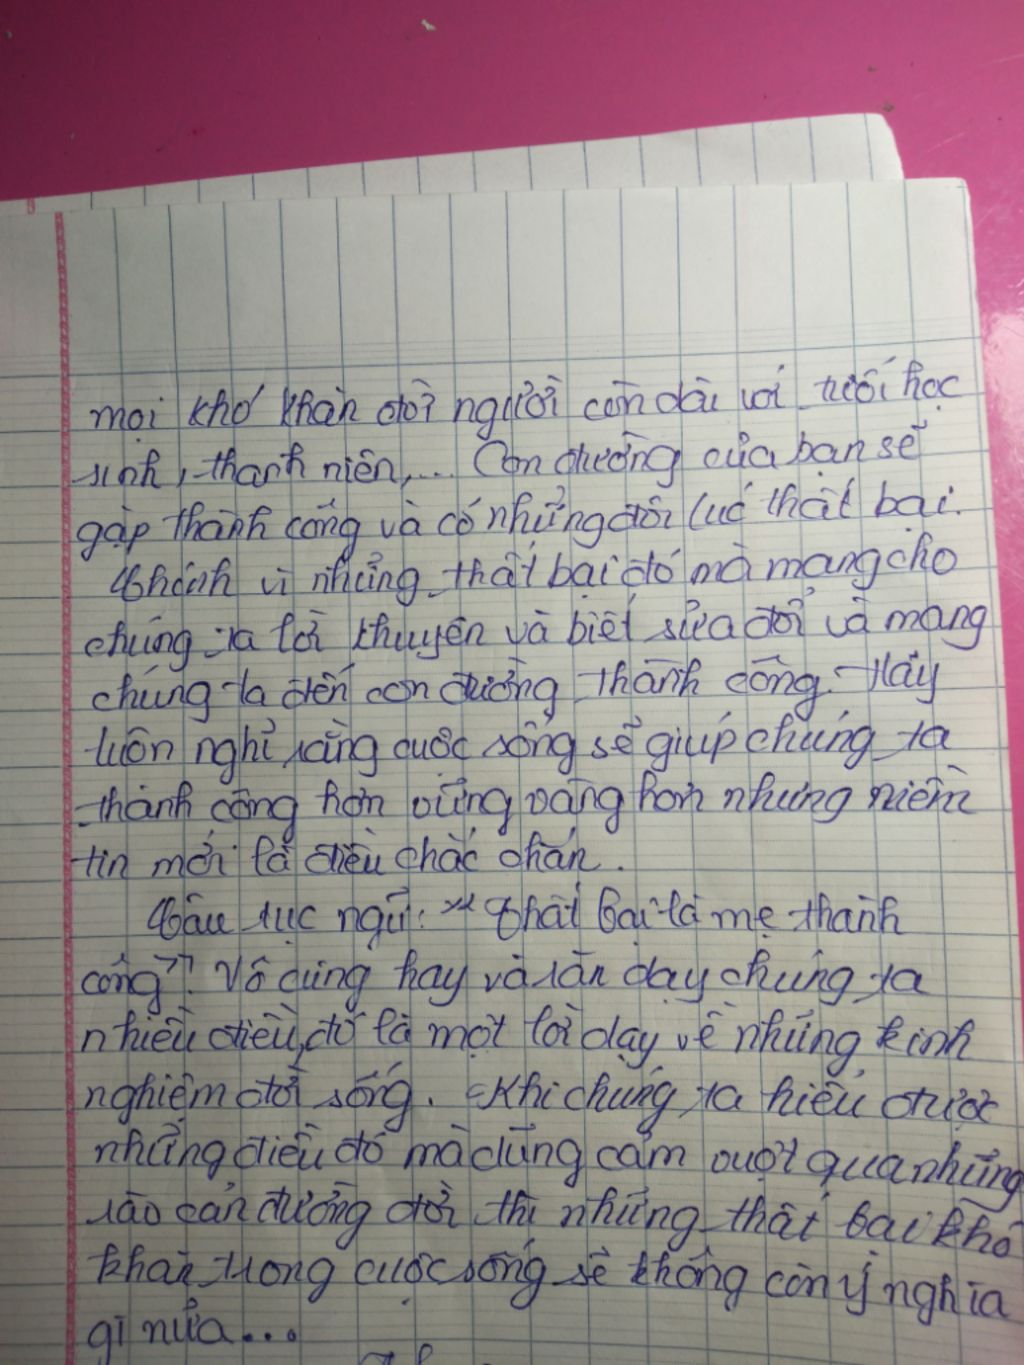 mọi khó khăn đời người còn dài với tuổi học
sinh, thanh niên,... Con đường của bạn sẽ
gặp thành công và có những đôi lúc thất bại.
Chính vì những thất bại đó mà mang cho
chúng ta lời khuyên và biết sửa đổi và mang
chúng ta đến con đường thành công. Hãy
luôn nghĩ rằng cuộc sống sẽ giúp chúng ta
thành công hơn vững vàng hơn nhưng niềm
tin mới là điều chắc chắn.
Câu tục ngữ: "Thất bại là mẹ thành
công". Vô cùng hay và răn dạy chúng ta
nhiều điều, đó là một lời dạy về những kinh
nghiệm đời sống. Khi chúng ta hiểu được
những điều đó mà dũng cảm vượt qua những
rào cản đường đời thì những thất bại khó
khăn trong cuộc sống sẽ không còn ý nghĩa
gì nữa...